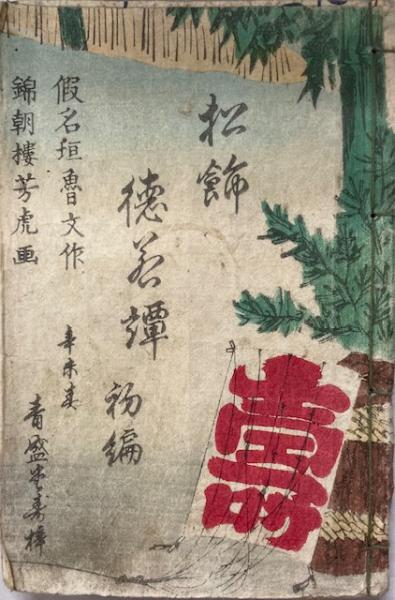 壽
松飾
徳若譚 初編
假名垣魯文作
錦朝樓芳虎画
辛未春
青盛堂寿梓